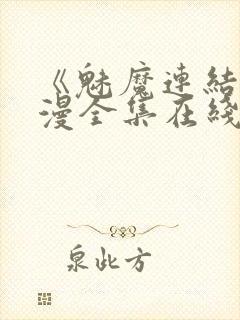 《魅魔連結
漫全集在綫
泉此方